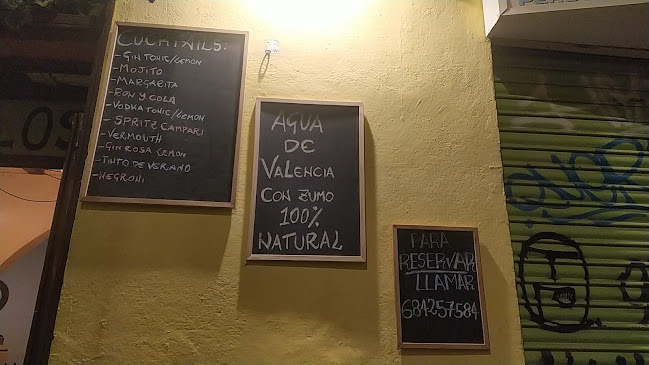 COCKTAILS:
- GIN TONIC/LEMON
- MOJITO
- MARGARITA
- RON Y COLA
- VODKA TONIC/LEMON
- SPRITZ CAMPARI
- VERMOUTH
- GIN ROSA LEMON
- TINTO DE VERANO
- NEGRONI
AGUA
DE
VALENCIA
CON ZUMO
100%
NATURAL
PARA
RESERVAR
LLAMAR
684257584